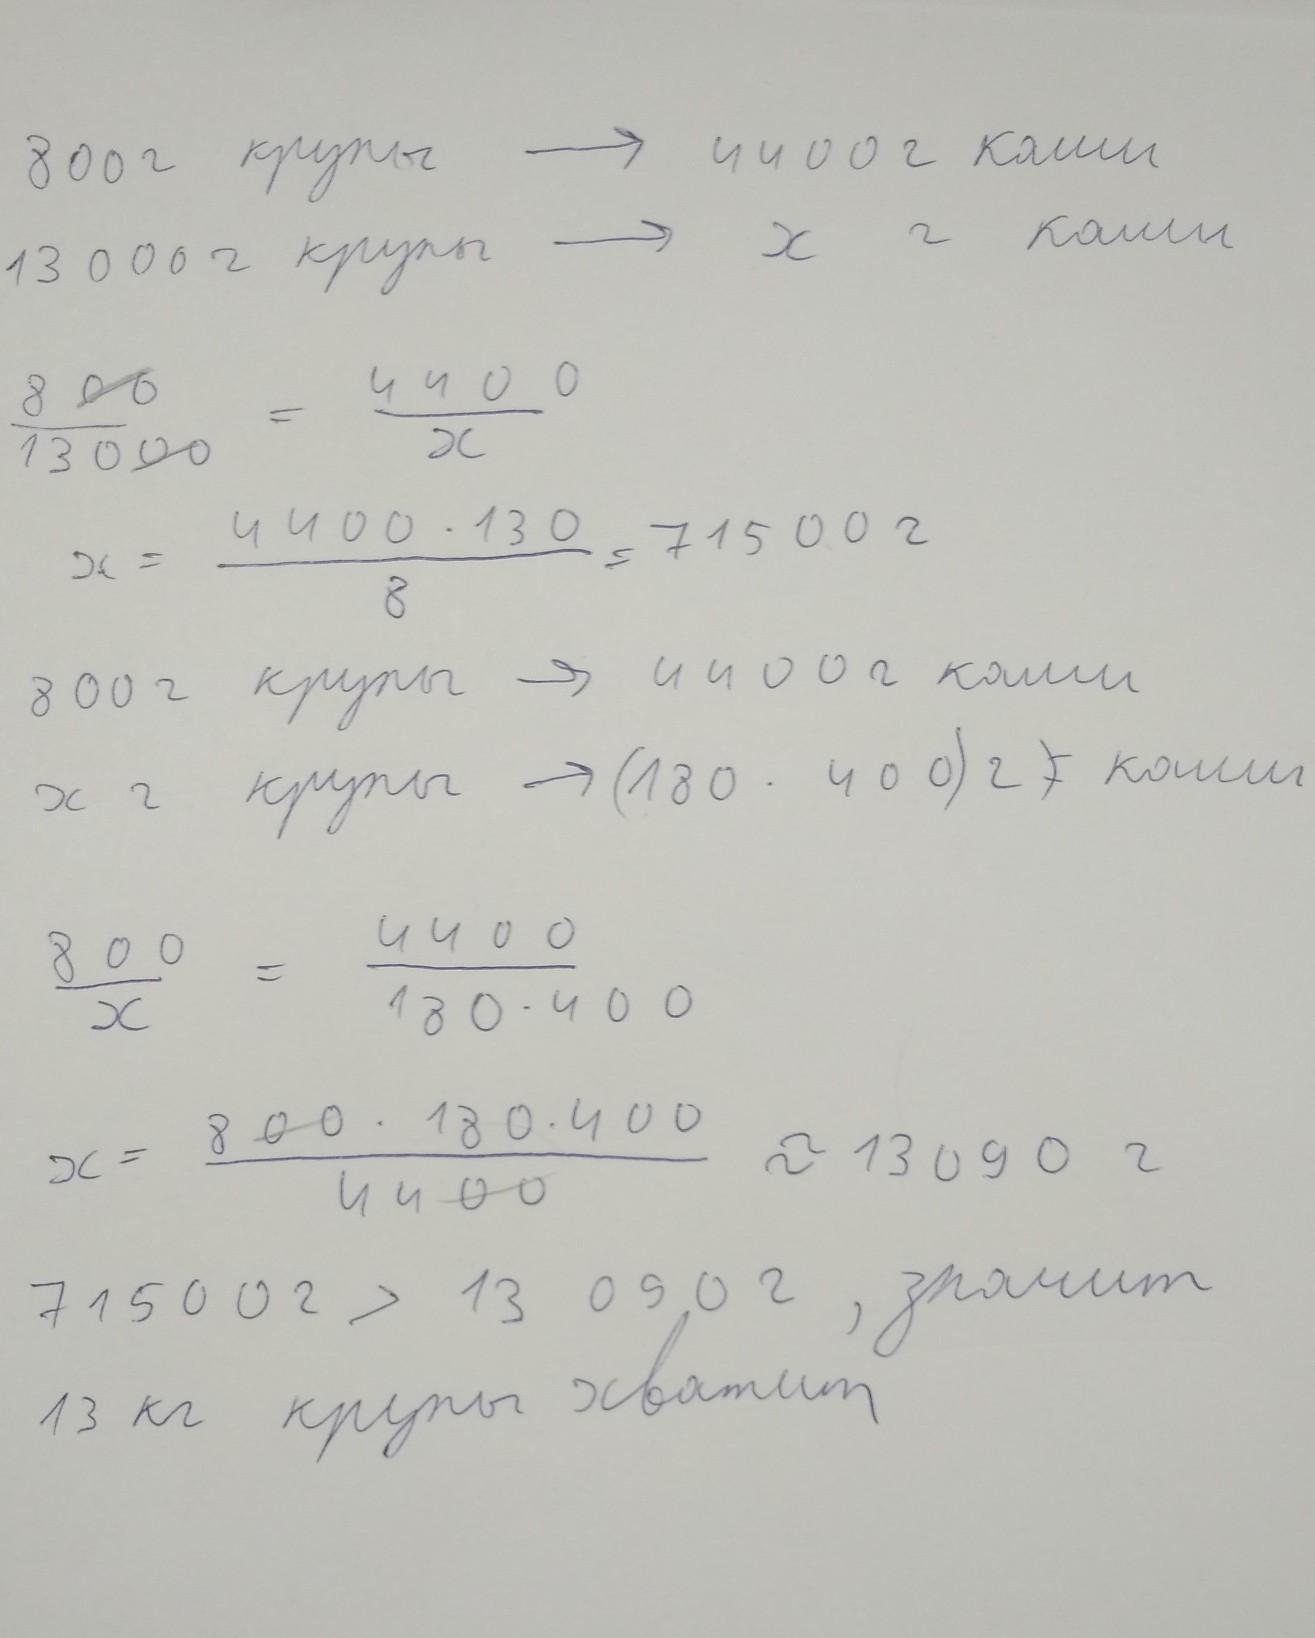 800г крупы → 4400г каши
13000г крупы → x г каши
800/13000 = 4400/x
x = 4400·130/8 = 71500г
800г крупы → 4400г каши
x г крупы → (180·400)г каши
800/x = 4400/180·400
x = 800·180·400/4400 ≈ 13090 г
71500г > 13090г, значит
13 кг крупы хватит